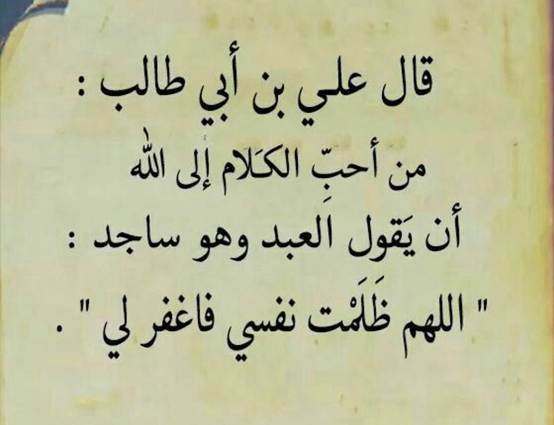 قال علي بن أبي طالب :
من أحبِّ الكَلام إلى الله
أن يَقول العبد وهو ساجد :
" اللهم ظَلَمْت نفسي فاغفر لي " .